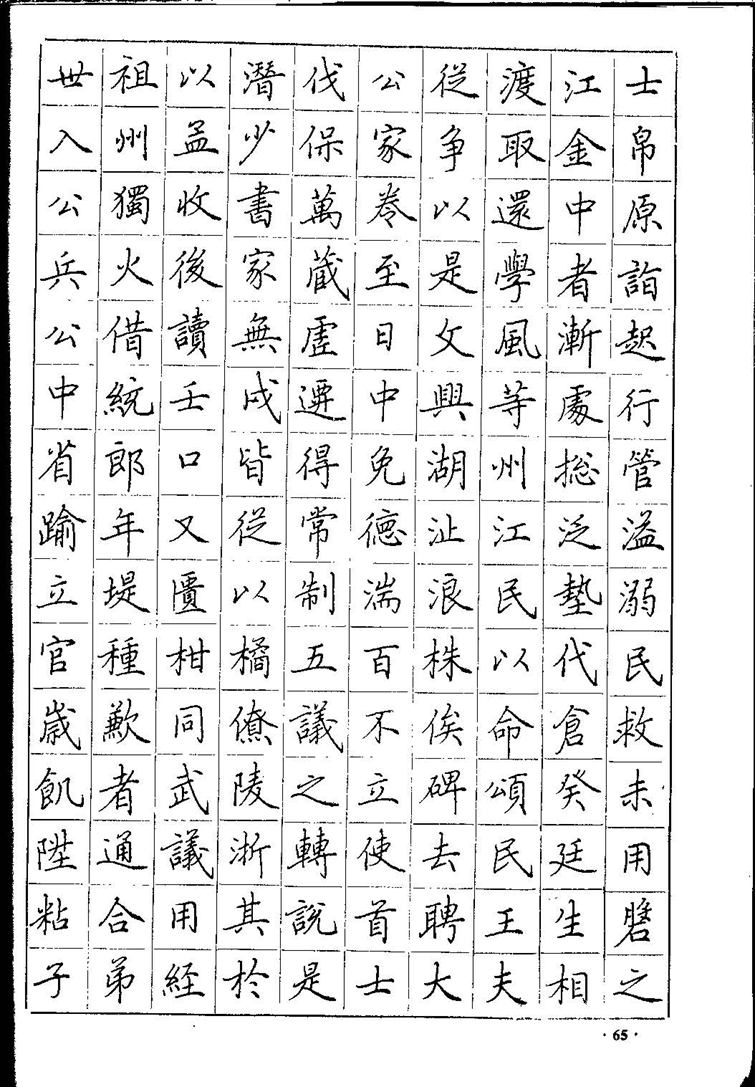 世祖以潛伐公從渡江士
入州孟少保家争取金帛
公獨收書萬卷以還中原
兵火後家藏至是學者詣
公借讀無虛日文風漸起
中統壬戌遷中興等處行
省郎口皆得免湖州総管
踰年又從常德沚江泛溢
立堤匱以制湍浪民墊溺
官種柑橘五百株以代民
歲歉同僚議不俟命倉救
飢者武陵之立碑頌癸未
陞通議浙轉使去民廷用
粘合用其說首聘王生謄
子弟經於是士大夫相之
·65·